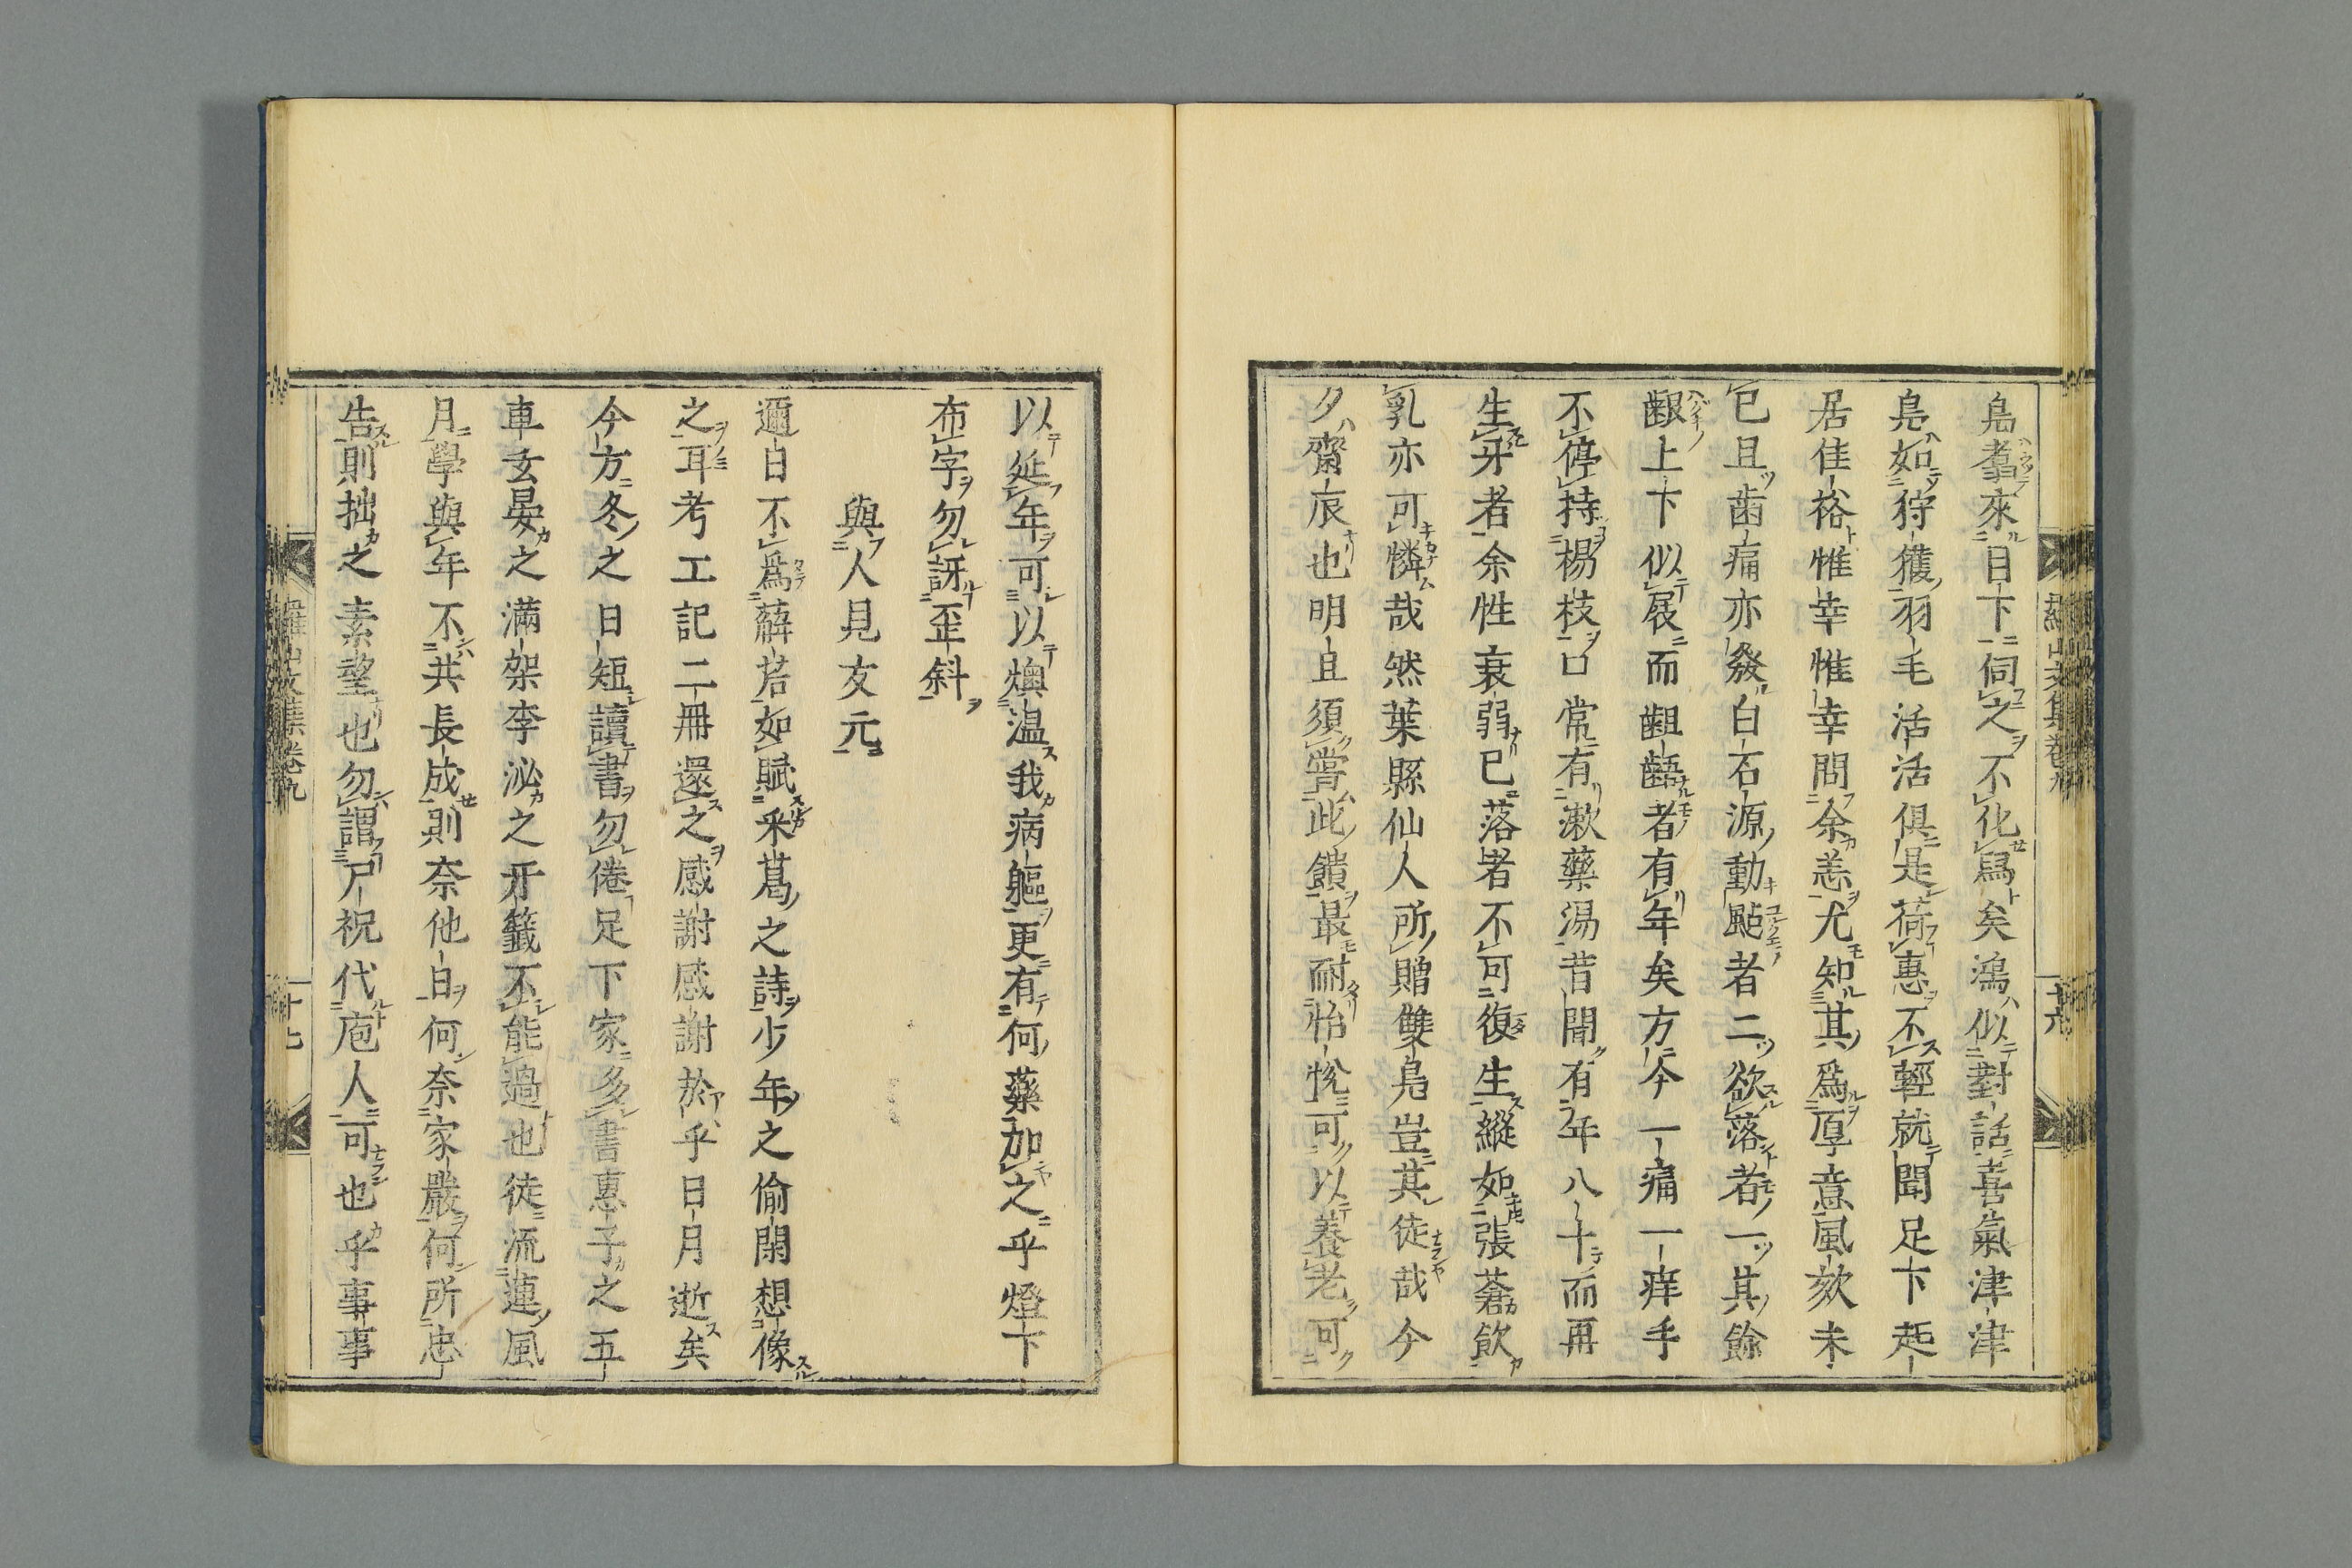 鳧翥來日下伺之不化爲矣鴻似對話喜氣津津
鳧如狩獲羽毛活活俱是荷惠不輕就聞足下起
居佳裕惟幸惟幸問余恙尤知其爲厚意風欬未
已且齒痛亦發白石源動㸃者二欲落者一其餘
齦上下似屐而齟齬者有年矣方今一痛一痒手
不停持楊枝口常有漱藥湯昔聞有年八十而再
生牙者余性衰弱已落者不可復生縱如張蒼飲
乳亦可憐哉然葉縣仙人所贈雙鳧豈其徒哉今
夕齋戻也明旦須嘗此饋最耐怡悅可以養老可
羅山文集卷九
十六
以延年可以燠温我病軀更有何藥加之乎燈下
布字勿訝歪斜
與人見友元
邇日不爲薢茩如賦采葛之詩少年之偷閑想像
之耳考工記二冊還之感謝感謝於乎日月逝矣
今方冬之日短讀書勿倦足下家多書惠子之五
車玄晏之滿架李泌之牙籤不能過也徒流蓮風
月學與年不共長成則奈他日何奈家嚴何所忠
告則拙之素望也勿謂尸祝代庖人可也乎事事
羅山文集卷九
十七